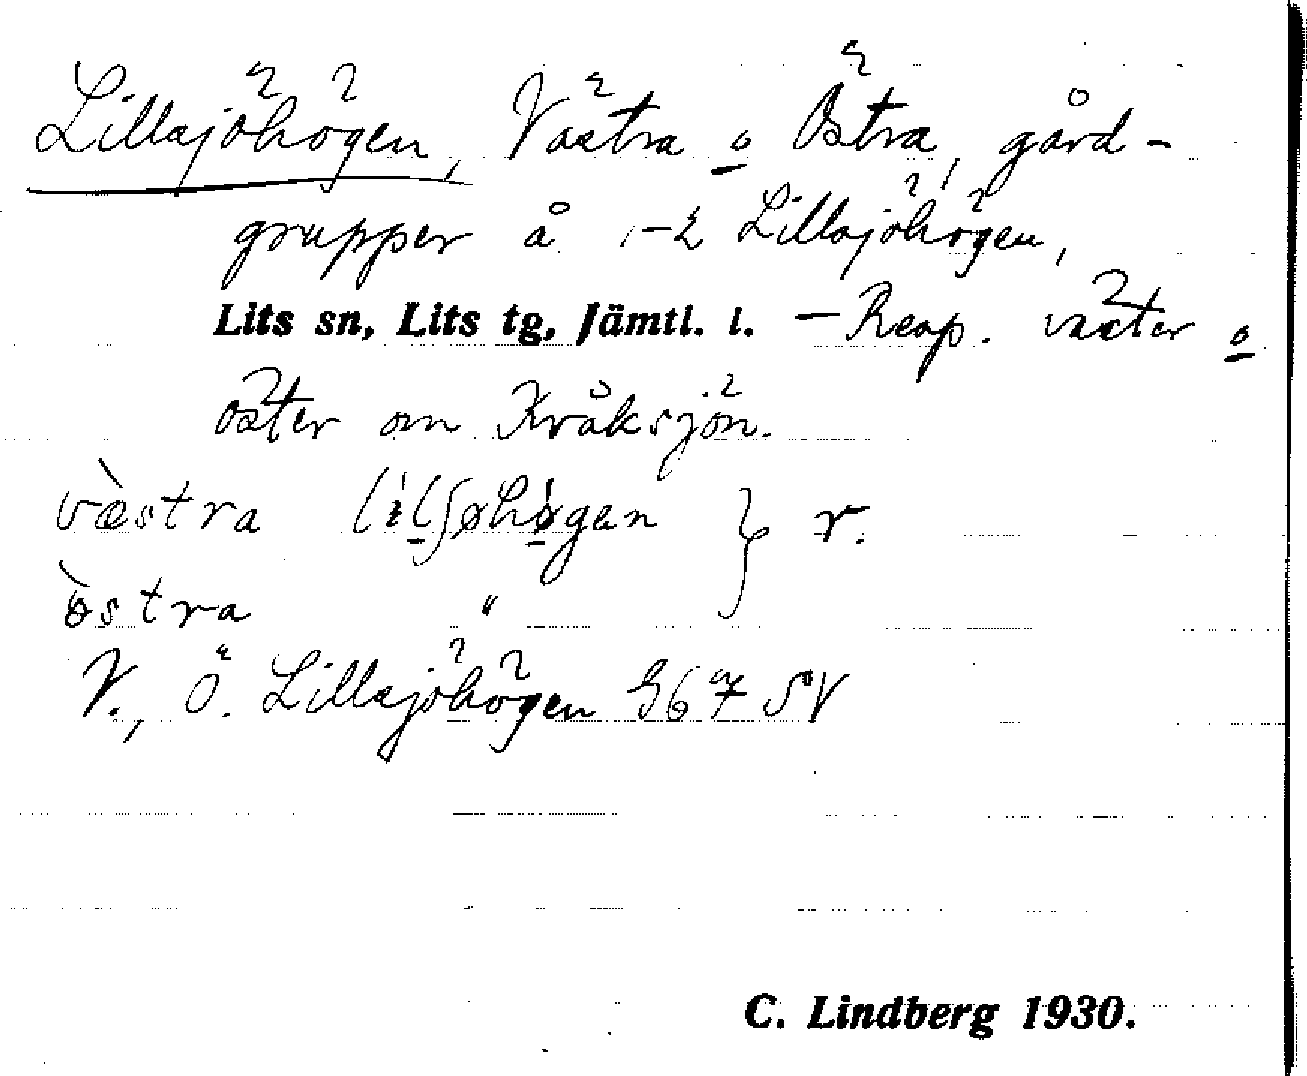 Lillsjöhögen, Västra o Östra, gård-
grupper å 1-2 Lillsjöhögen,
Lits sn, Lits tg, Jämtl. l. – Resp. väster o
öster om Kråksjön.
væ̀stra } r.
östra "
V., Ö. Lillsjöhögen G67 SV
C. Lindberg 1930.